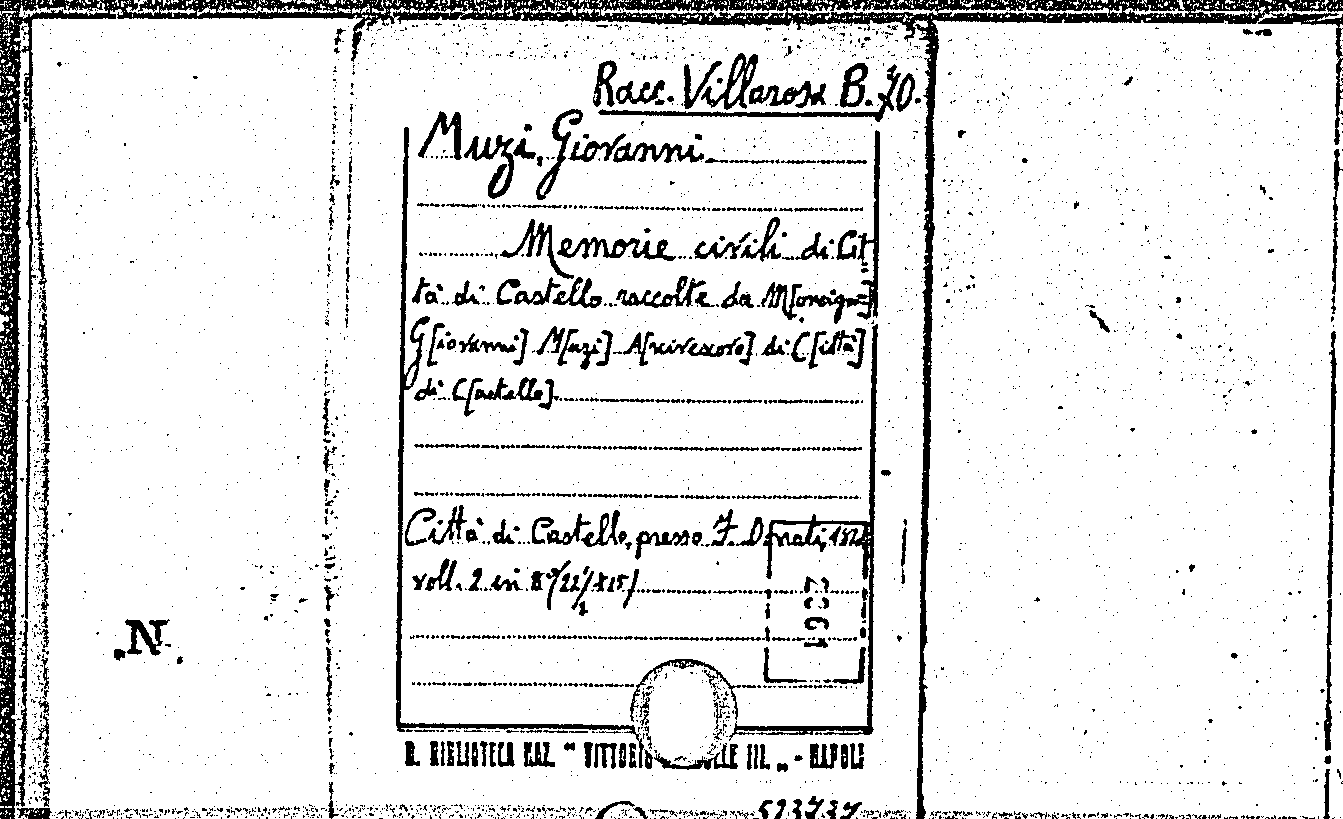 Racc. Villarosa B. 70.
Muzi, Giovanni
Memorie civili di Cit
tà di Castello raccolte da M[onsign=]
G[iovanni] M[uzi] A[rcivescovo] di C[ittà]
di C[astello]
Città di Castello, presso F. Donati,
voll. 2 in 8°
2361
R. BIBLIOTECA NAZ. " VITTORIO III. „ - NAPOLI
523737
N.